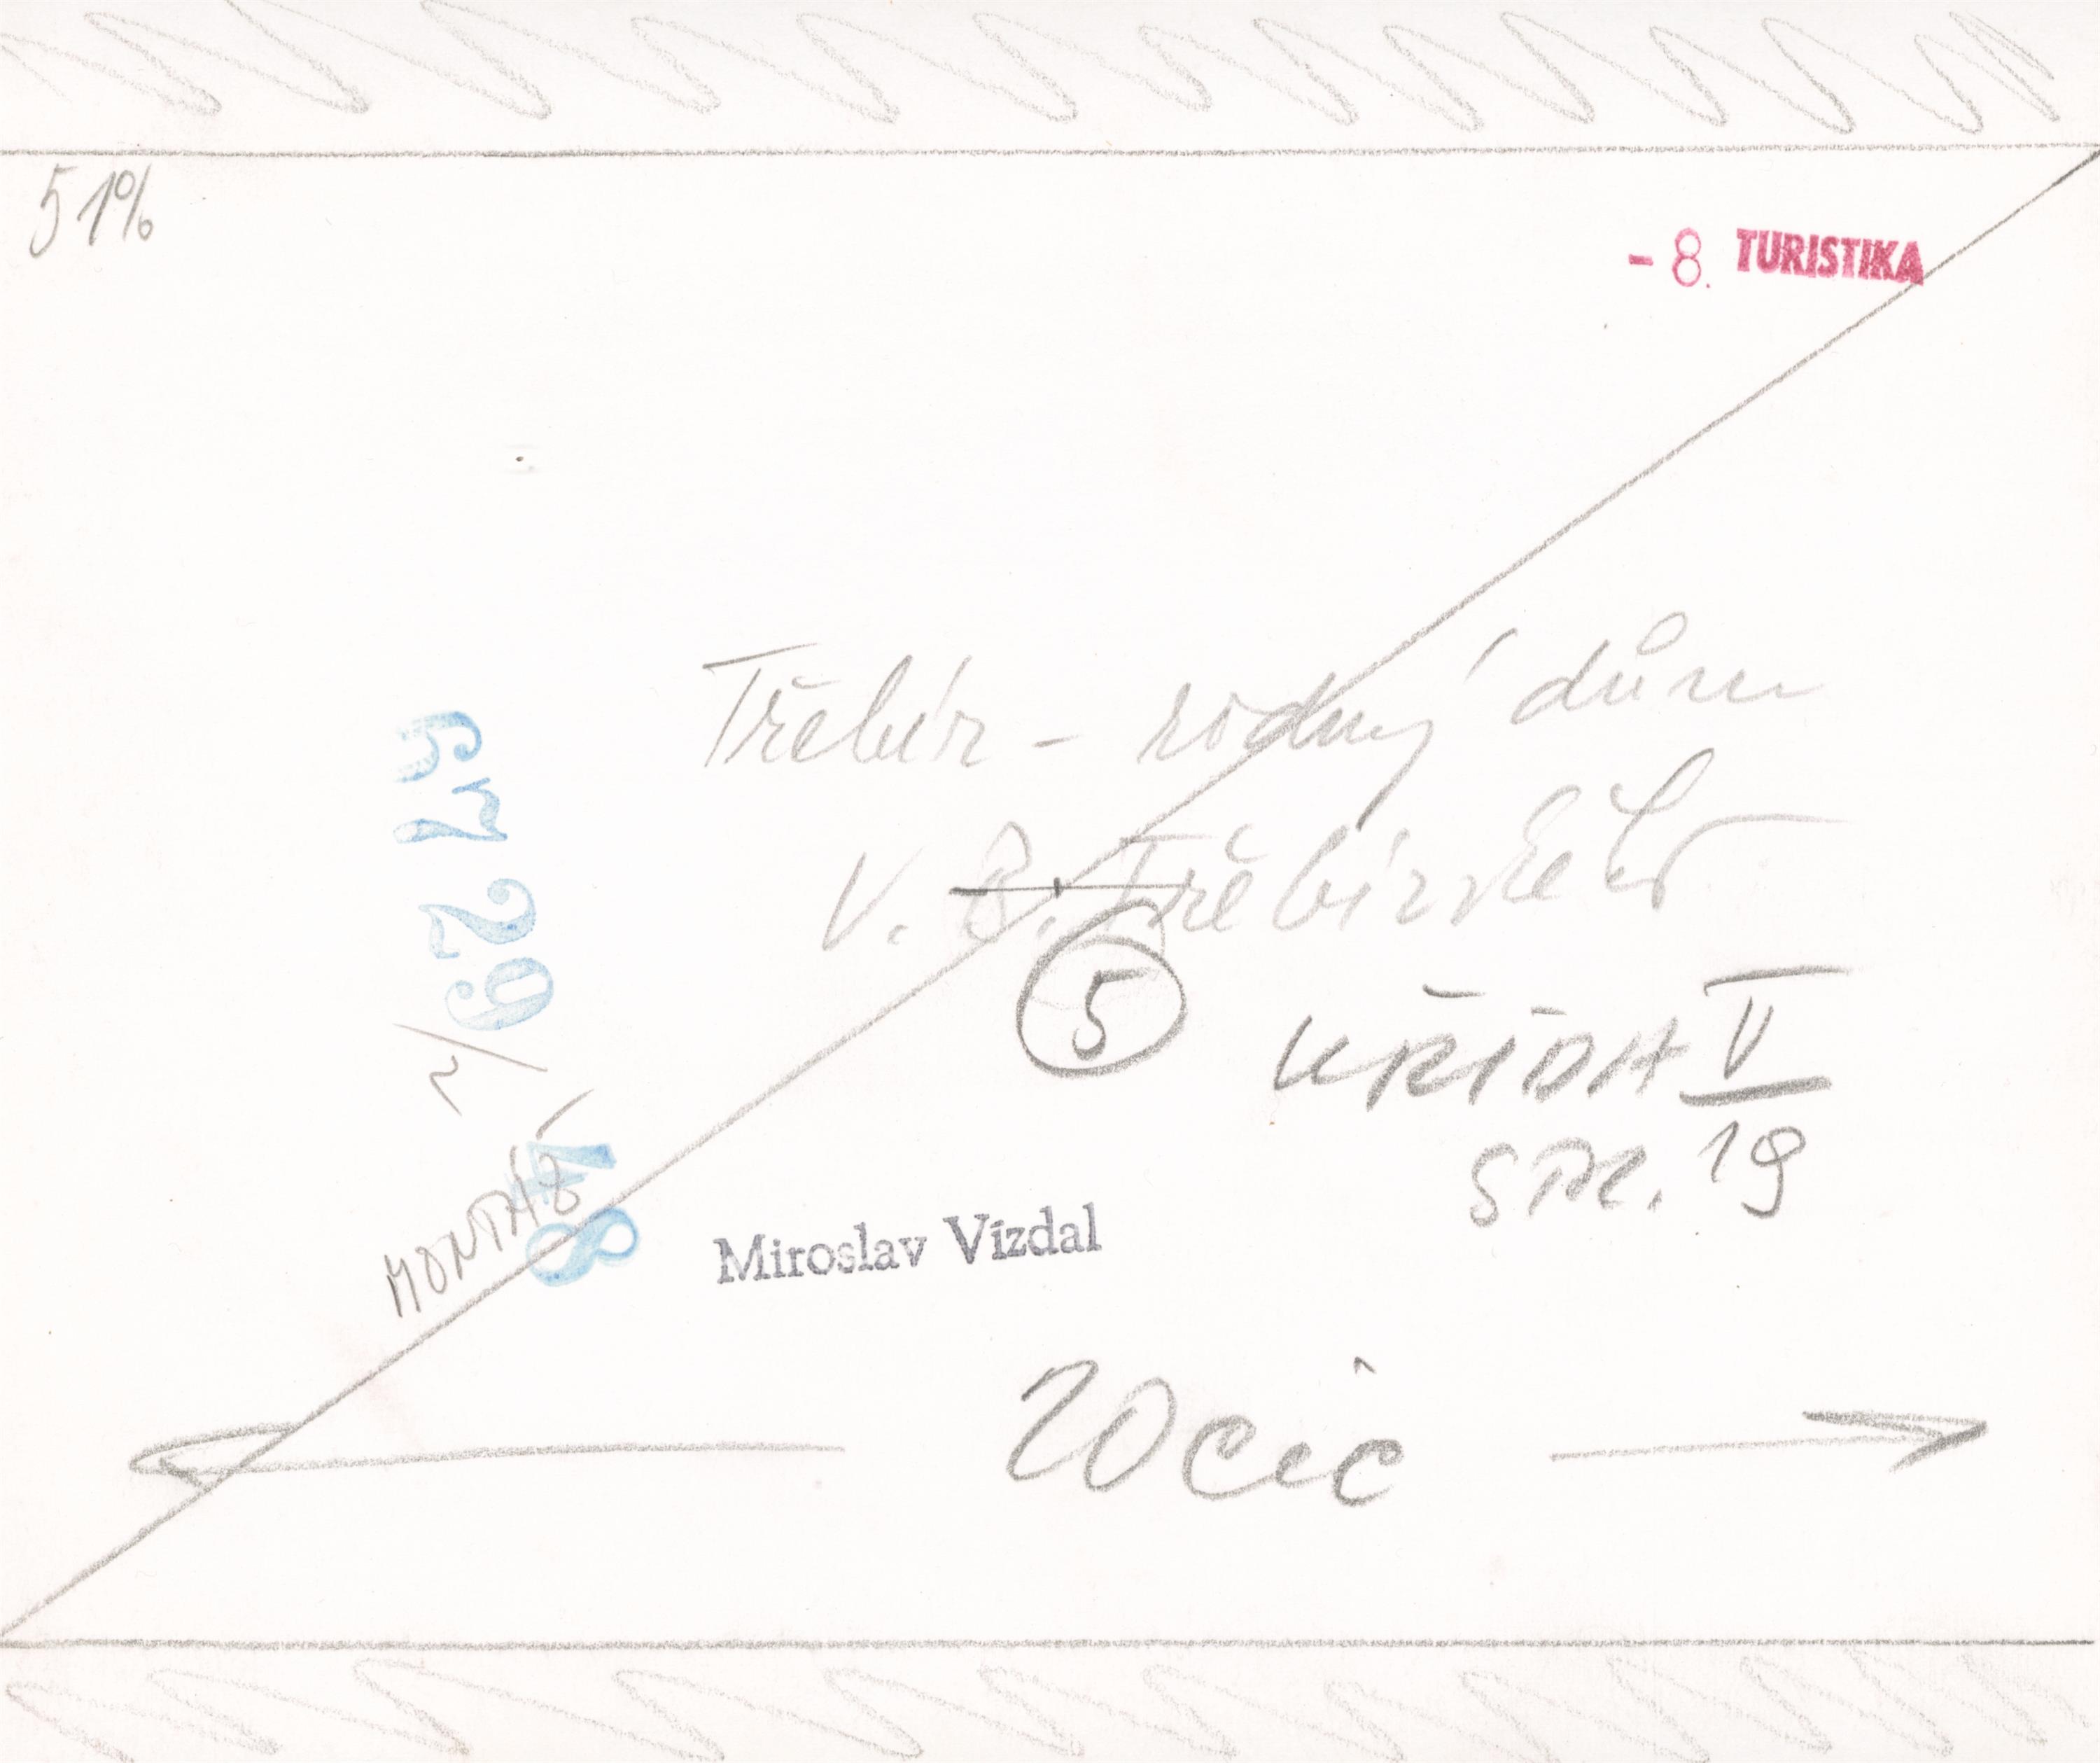 51%
- 8. TURISTIKA
Třebíz - rodný dům
V. B. Třebízského
5
KŘÍDA V
STR. 19
67 29/2
48
MONTÁŽ
Miroslav Vízdal
20 cic